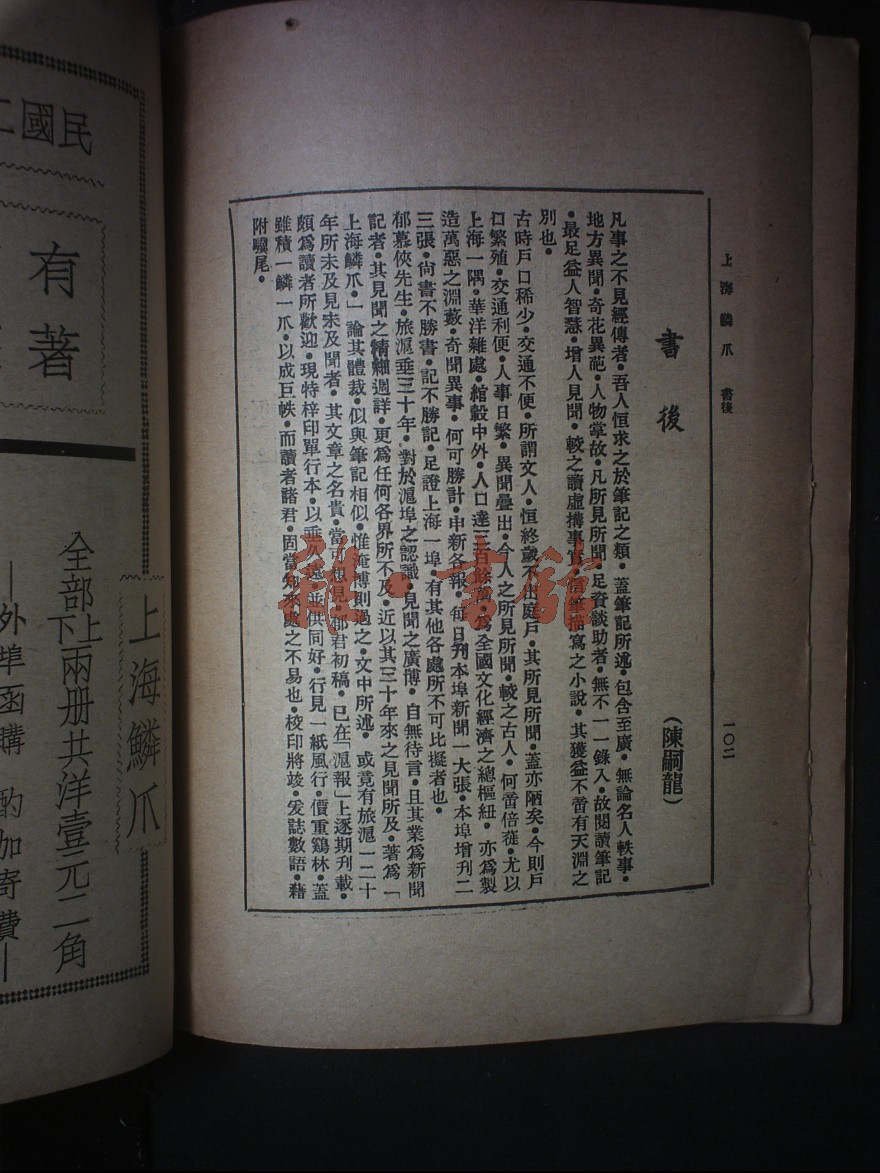 上海鱗爪　書後
一〇二
書後
（陳嗣龍）
凡事之不見經傳者●吾人恒求之於筆記之類●蓋筆記所述●包含至廣●無論名人軼事●
地方異聞●奇花異葩●人物掌故●凡所見所聞●足資談助者●無不一一錄入●故閱讀筆記
●最足益人智慧●增人見聞●較之讀虛搆事實●信筆描寫之小說●其獲益不啻有天淵之
別也●
古時戶口稀少●交通不便●所謂文人●恒終歲不出庭戶●其所見所聞●蓋亦陋矣●今則戶
口繁殖●交通利便●人事日繁●異聞疊出●今人之所見所聞●較之古人●何啻倍蓰●尤以
上海一隅●華洋雜處●綰轂中外●人口達三百餘萬●為全國文化經濟之總樞紐●亦為製
造萬惡之淵藪●奇聞異事●何可勝計●申新各報●每日刊本埠新聞一大張●本埠增刊二
三張●尙書不勝書●記不勝記●足證上海一埠●有其他各處所不可比擬者也●
郁慕俠先生●旅滬垂三十年●對於滬埠之認識●見聞之廣博●自無待言●且其業爲新聞
記者●其見聞之精細週詳●更爲任何各界所不及●近以其三十年來之見聞所及●著爲「
上海鱗爪●」論其體裁●似與筆記相似●惟淹博則過之●文中所述●或竟有旅滬一二十
年所未及見未及聞者●其文章之名貴●當可想見●郁君初稿●已在「滬報」上逐期刋載●
頗爲讀者所歡迎●現特梓印單行本●以垂久遠●並供同好●行見一紙風行●價重鷄林●蓋
雖積一鱗一爪●以成巨帙●而讀者諸君●固當知來處之不易也●校印將竣●爰誌數語●藉
附驥尾●
民國二
有著
上海鱗爪
全部上下兩册共洋壹元二角
—外埠函購　酌加寄費—
雜·書館